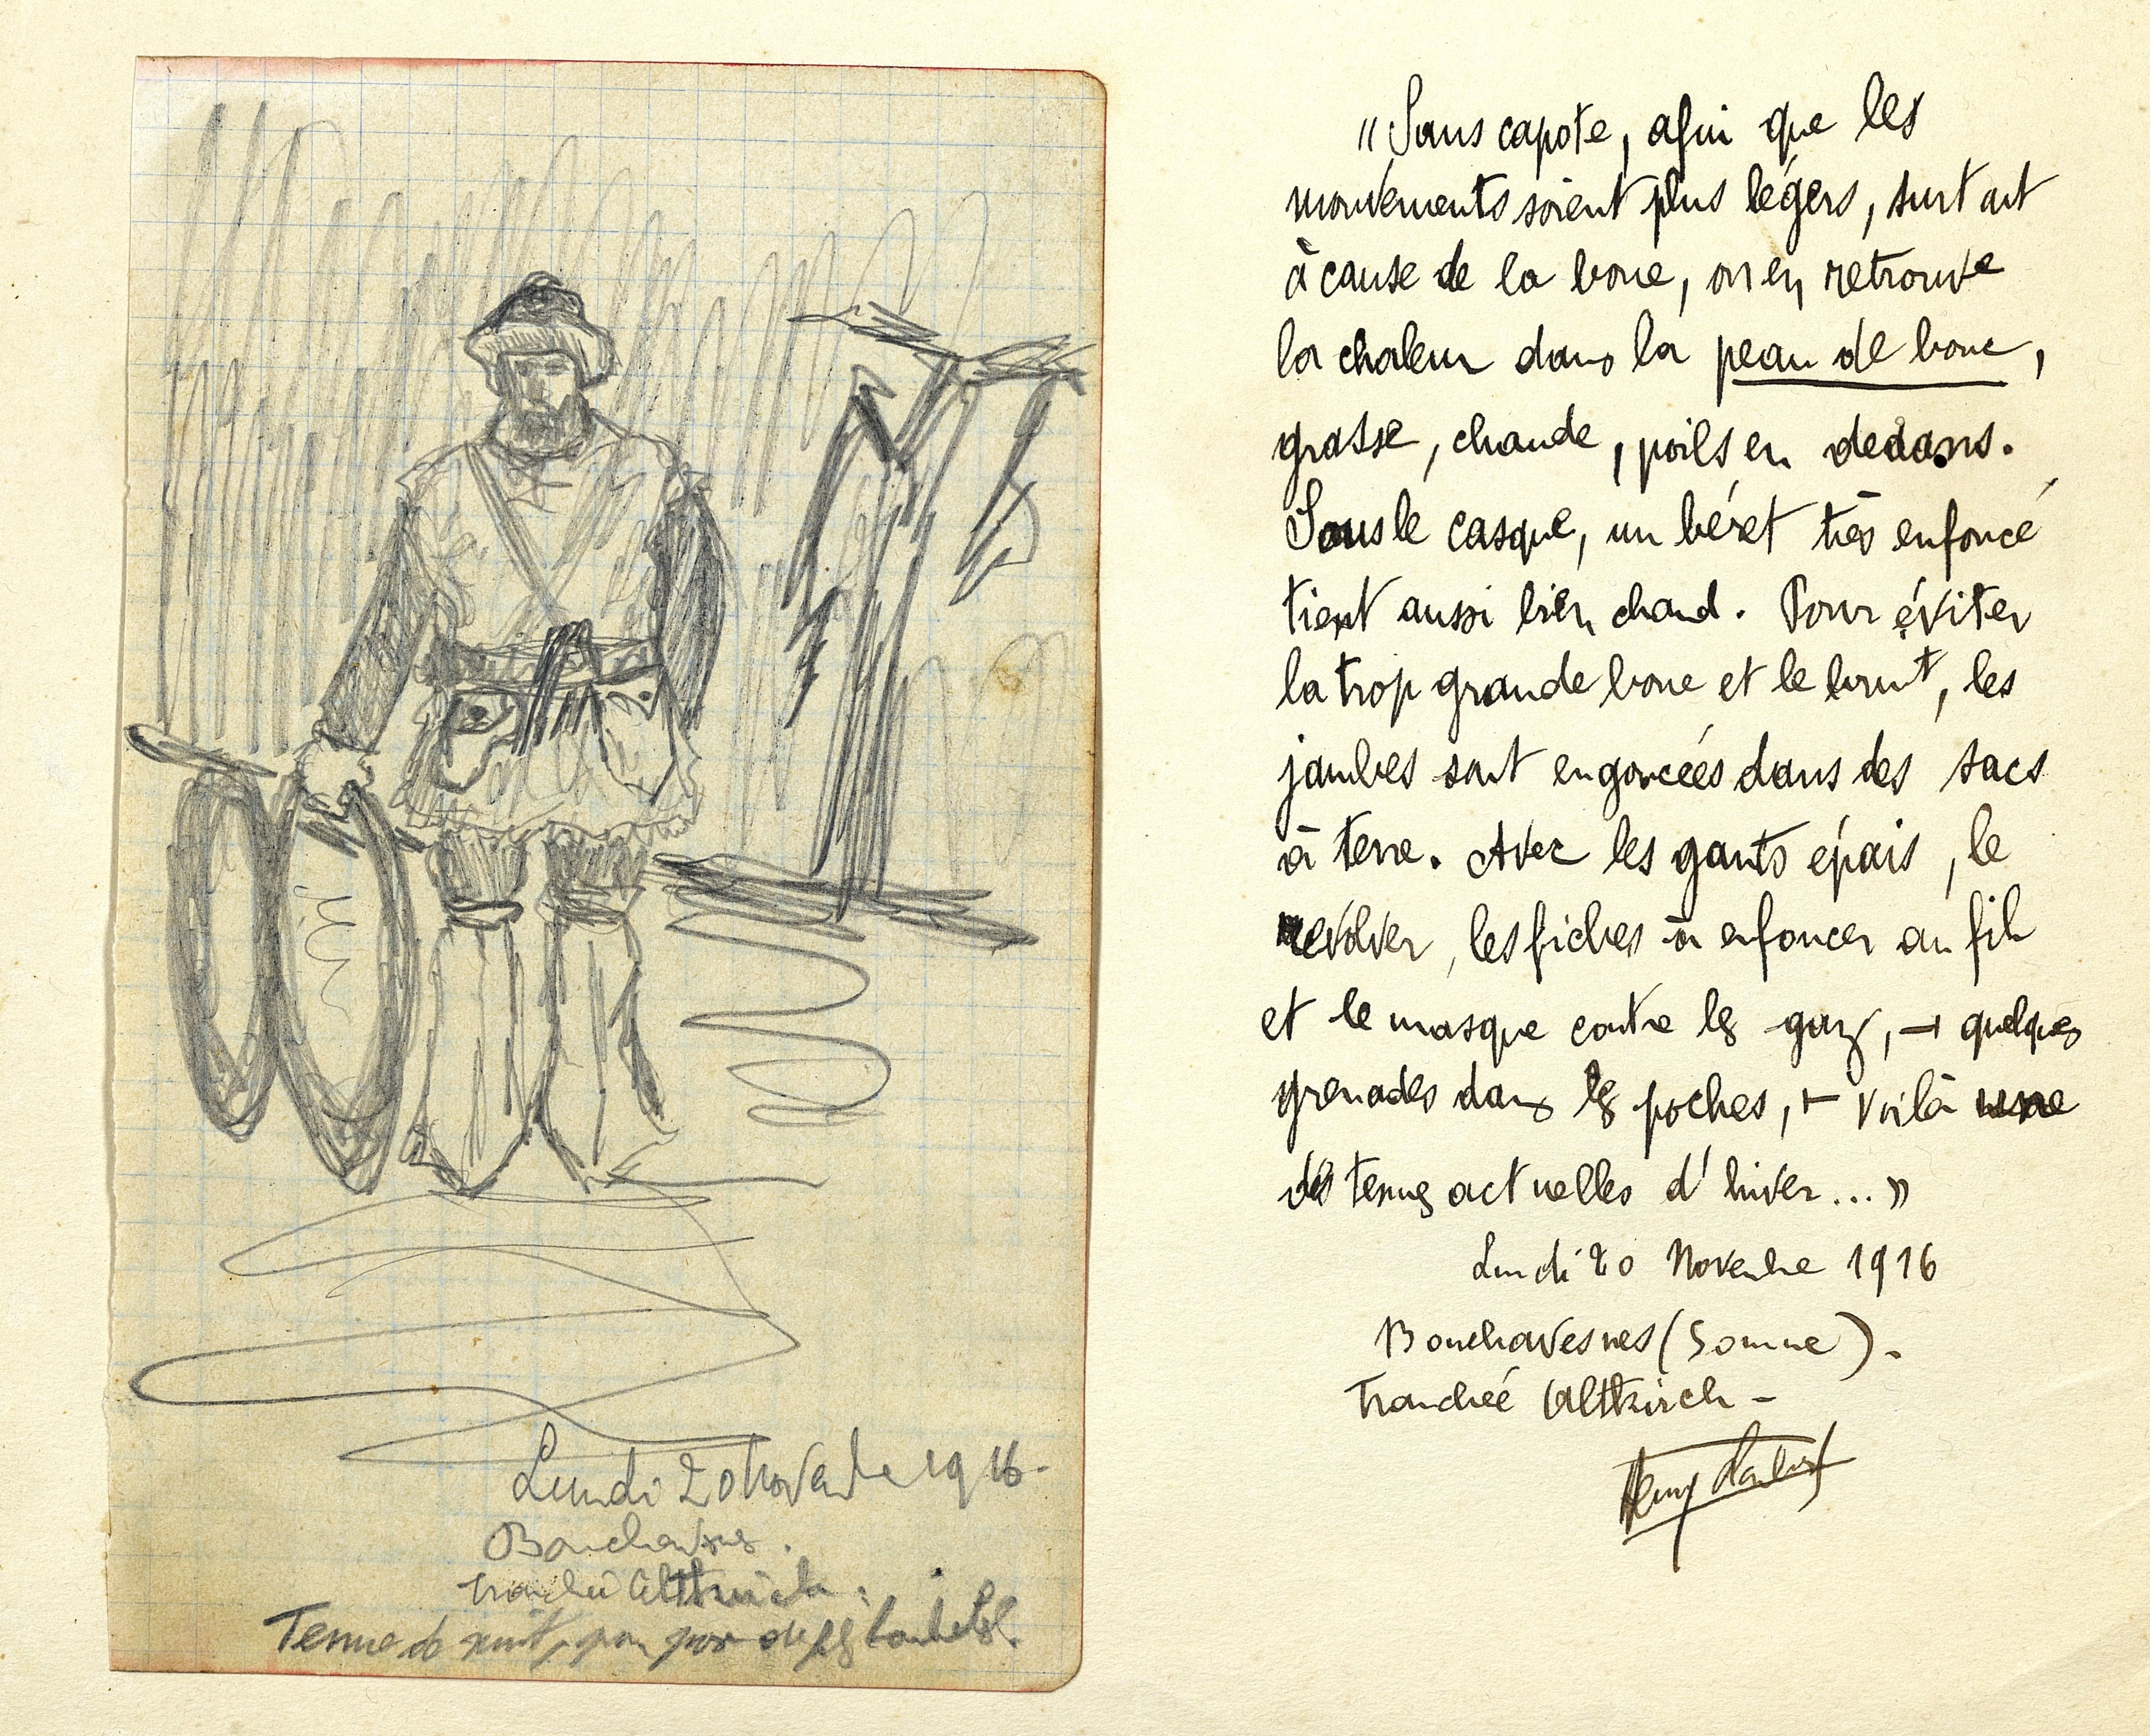 Lundi 20 Novembre 1916.
Bouchavesnes.
tranchée Altkirch.
Tenue de nuit, pour pose de fils barbelés.
"Sans capote, afin que les
mouvements soient plus légers, surtout
à cause de la boue, on en retrouve
la chaleur dans la peau de bouc,
grasse, chaude, poils en dedans.
Sous le casque, un béret très enfoncé
tient aussi bien chaud. Pour éviter
la trop grande boue et le bruit, les
jambes sont engoncées dans des sacs
à terre. Avec les gants épais, le
revolver, les fiches à enfoncer au fil
et le masque contre les gaz, – quelques
grenades dans les poches, – voilà une
des tenues actuelles d'hiver..."
Lundi 20 Novembre 1916
Bouchavesnes (Somme).
Tranchée Altkirch –